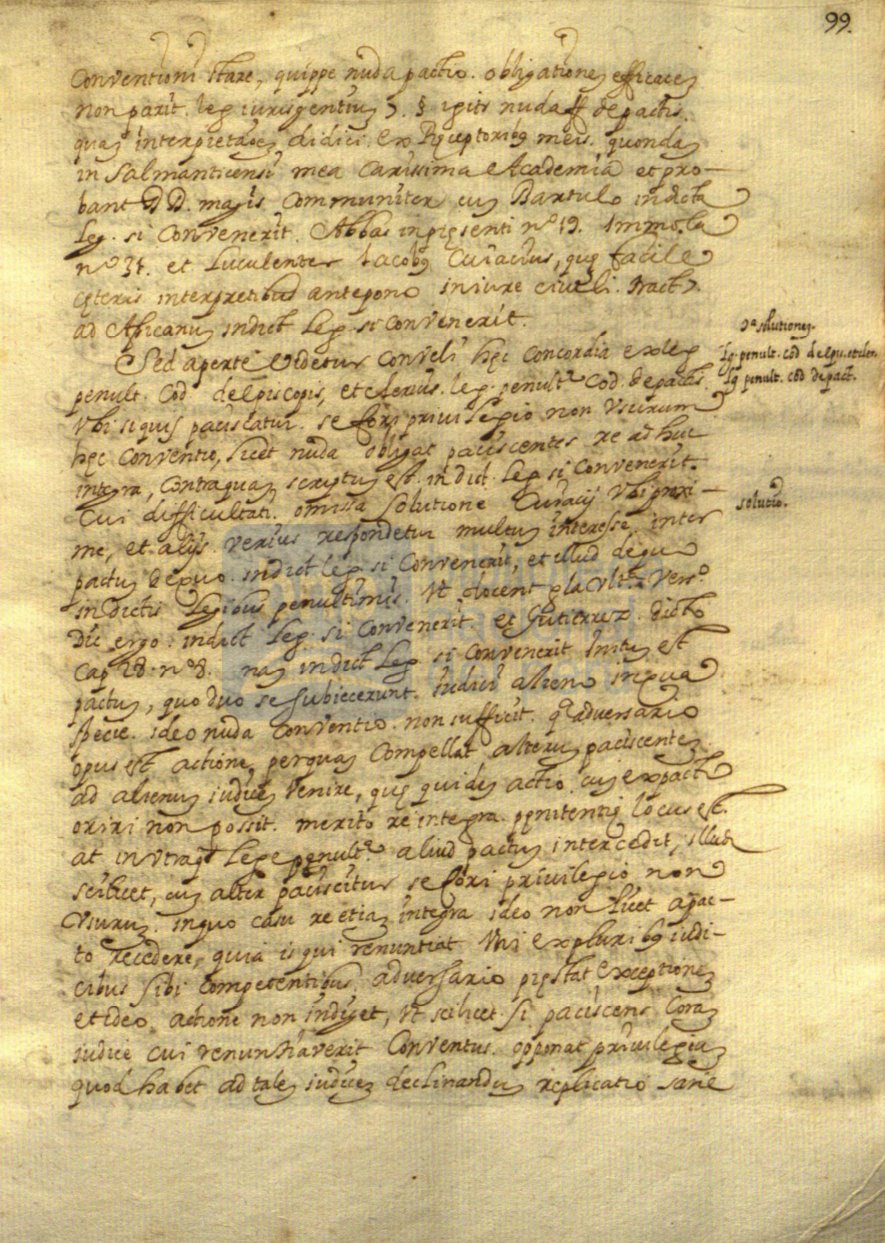 99.
conventioni stare, quippe nuda pactio. obligationez efficacez
non parit. leg iurisgentiuz 7. § igitr nuda ff de pactis.
quaz interpretaōēz didici. ex Pręceptoribꝰ meis. quondaz
in Salmanticensi mea carissima Academia et pro-
bant DD. magis communiter cuz Bartulo in dicta
leg. si convenerit. Abbas in pręsenti nº 19. Immola
nº 31. et luculenter Iacobꝰ Cuiacius, quę facile
cęteris interpretibus antepono in iure civili. tract 7.
ad Africanuz in dict leg si convenerit.
Sed aperte videtur convelli hęc concordia ex leg
penult. Cod de Episcopis, et clericis. leg. penultª Cod. de pactis.
Vbi si quis paciscatur. se fori privilegio non Vsurum
hęc conventio, licet nuda obligat paciscentes re adhuc
integra, contra quaz scriptuz est. in dict. leg si convenerit.
Cui difficultati. omissa solutione Cuiacij Vbi proxi-
me, et alijs. verius respondetur multuz interesse inter
pactuz de quo. in dict leg. si convenerit, et illud de quo
in dictis legibus penultimis. Vt docent glā Vltª Versº
Dic ergo. in dict leg. si convenerit et Gutierrez. dicto
Cap 28. nº 8. naz in dict leg si convenerit initu est
pactuz, quo duo se subiecerunt. iudici alieno in qua
specie. ideo nuda conventio. non sufficit. qª adversario
opus est actione, per quaz compellat alteruz paciscentez
ad alienuz iudicez venire, quę quidez actio. cuz ex pacto
oriri non possit. merito re integra pęnitentię locus est.
at in vtraqꝫ lege penultª aliud pactuz intercedit, illud
scilicet, cuz alter paciscitur se fori privilegio non
Vsuruz. in quo casu re etiaz integra ideo non licet a pac-
to recedere, quia is qui renuntiat Vni ex pluribꝰ iudi-
cibus sibi competentibus. adversario pręstat exceptionez
et ideo. actione non indiget, Vt scilicet. si paciscens Coraz
iudice cui renuntiaverit conventus. opponat privilegiuz
quod habet ad talez iudicez declinanduz replicatio sane
2ª solutionez.
Lg. penult. cōd de Epū. et cler.
Lg penult. cōd de pact.
solutio.